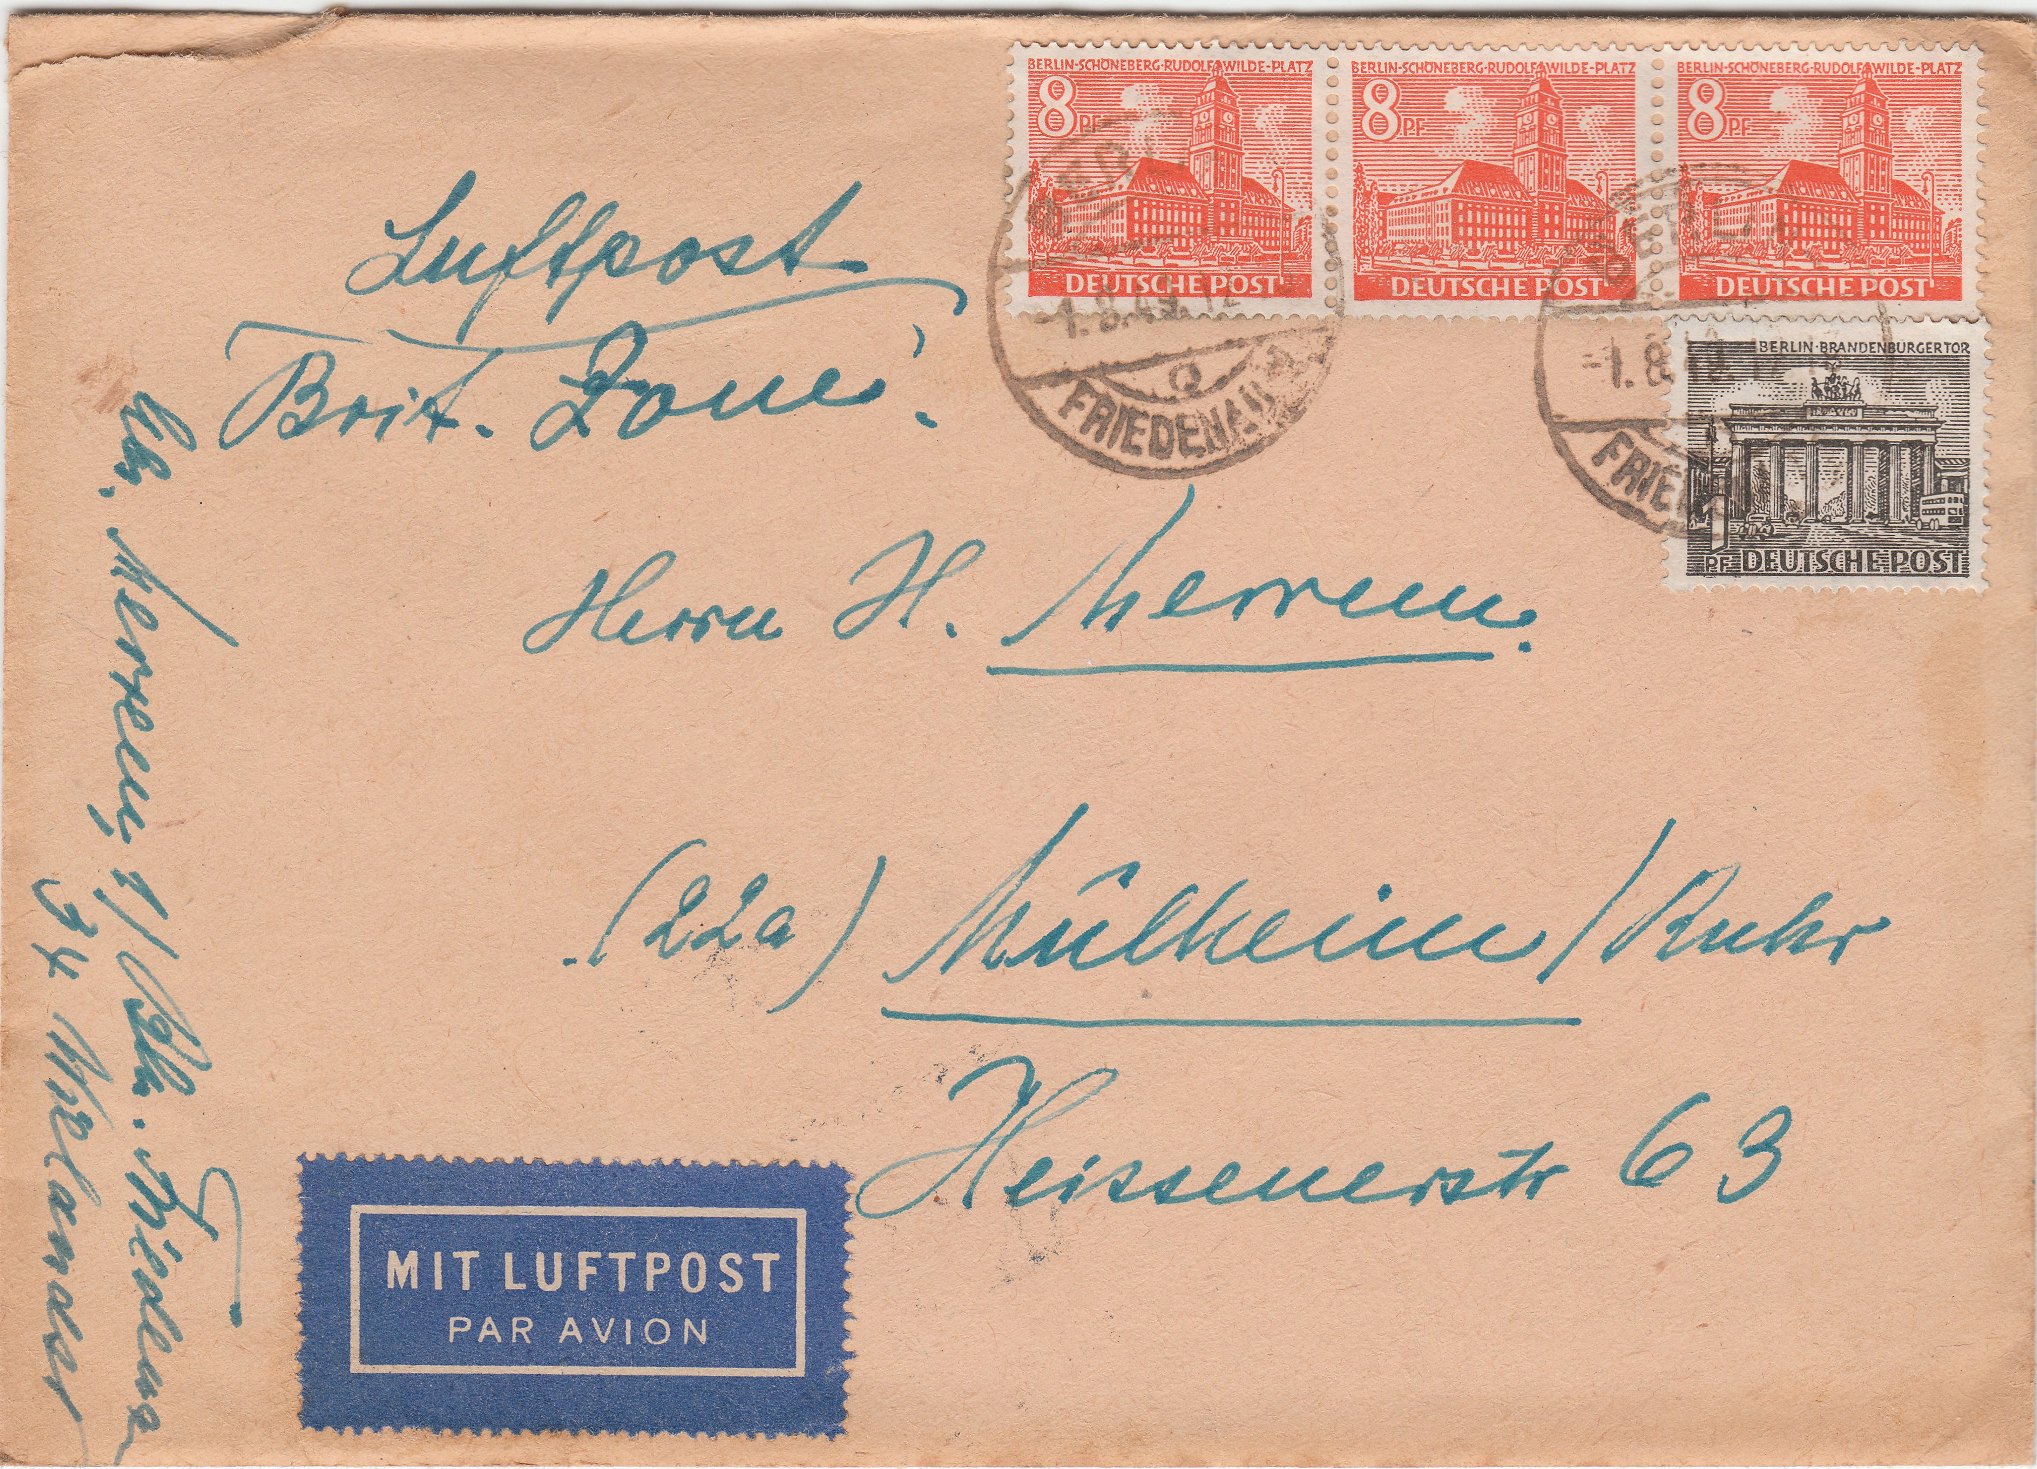 BERLIN-SCHÖNEBERG·RUDOLF WILDE-PLATZ
8 PF
DEUTSCHE POST
BERLIN-SCHÖNEBERG·RUDOLF WILDE-PLATZ
8 PF
DEUTSCHE POST
BERLIN-SCHÖNEBERG·RUDOLF WILDE-PLATZ
8 PF
DEUTSCHE POST
BERLIN·BRANDENBURGER TOR
1 PF
DEUTSCHE POST
BERLIN
-1.8.49.12
a
FRIEDENAU
BERLIN
-1.8.49.12
FRIEDENAU
Luftpost
Brit. Zone!
Herrn H. Merrem.
(22a) Mülheim/Ruhr
Heissenerstr 63
Abs. Merrem, 1) Bln. Friedenau
MIT LUFTPOST
PAR AVION